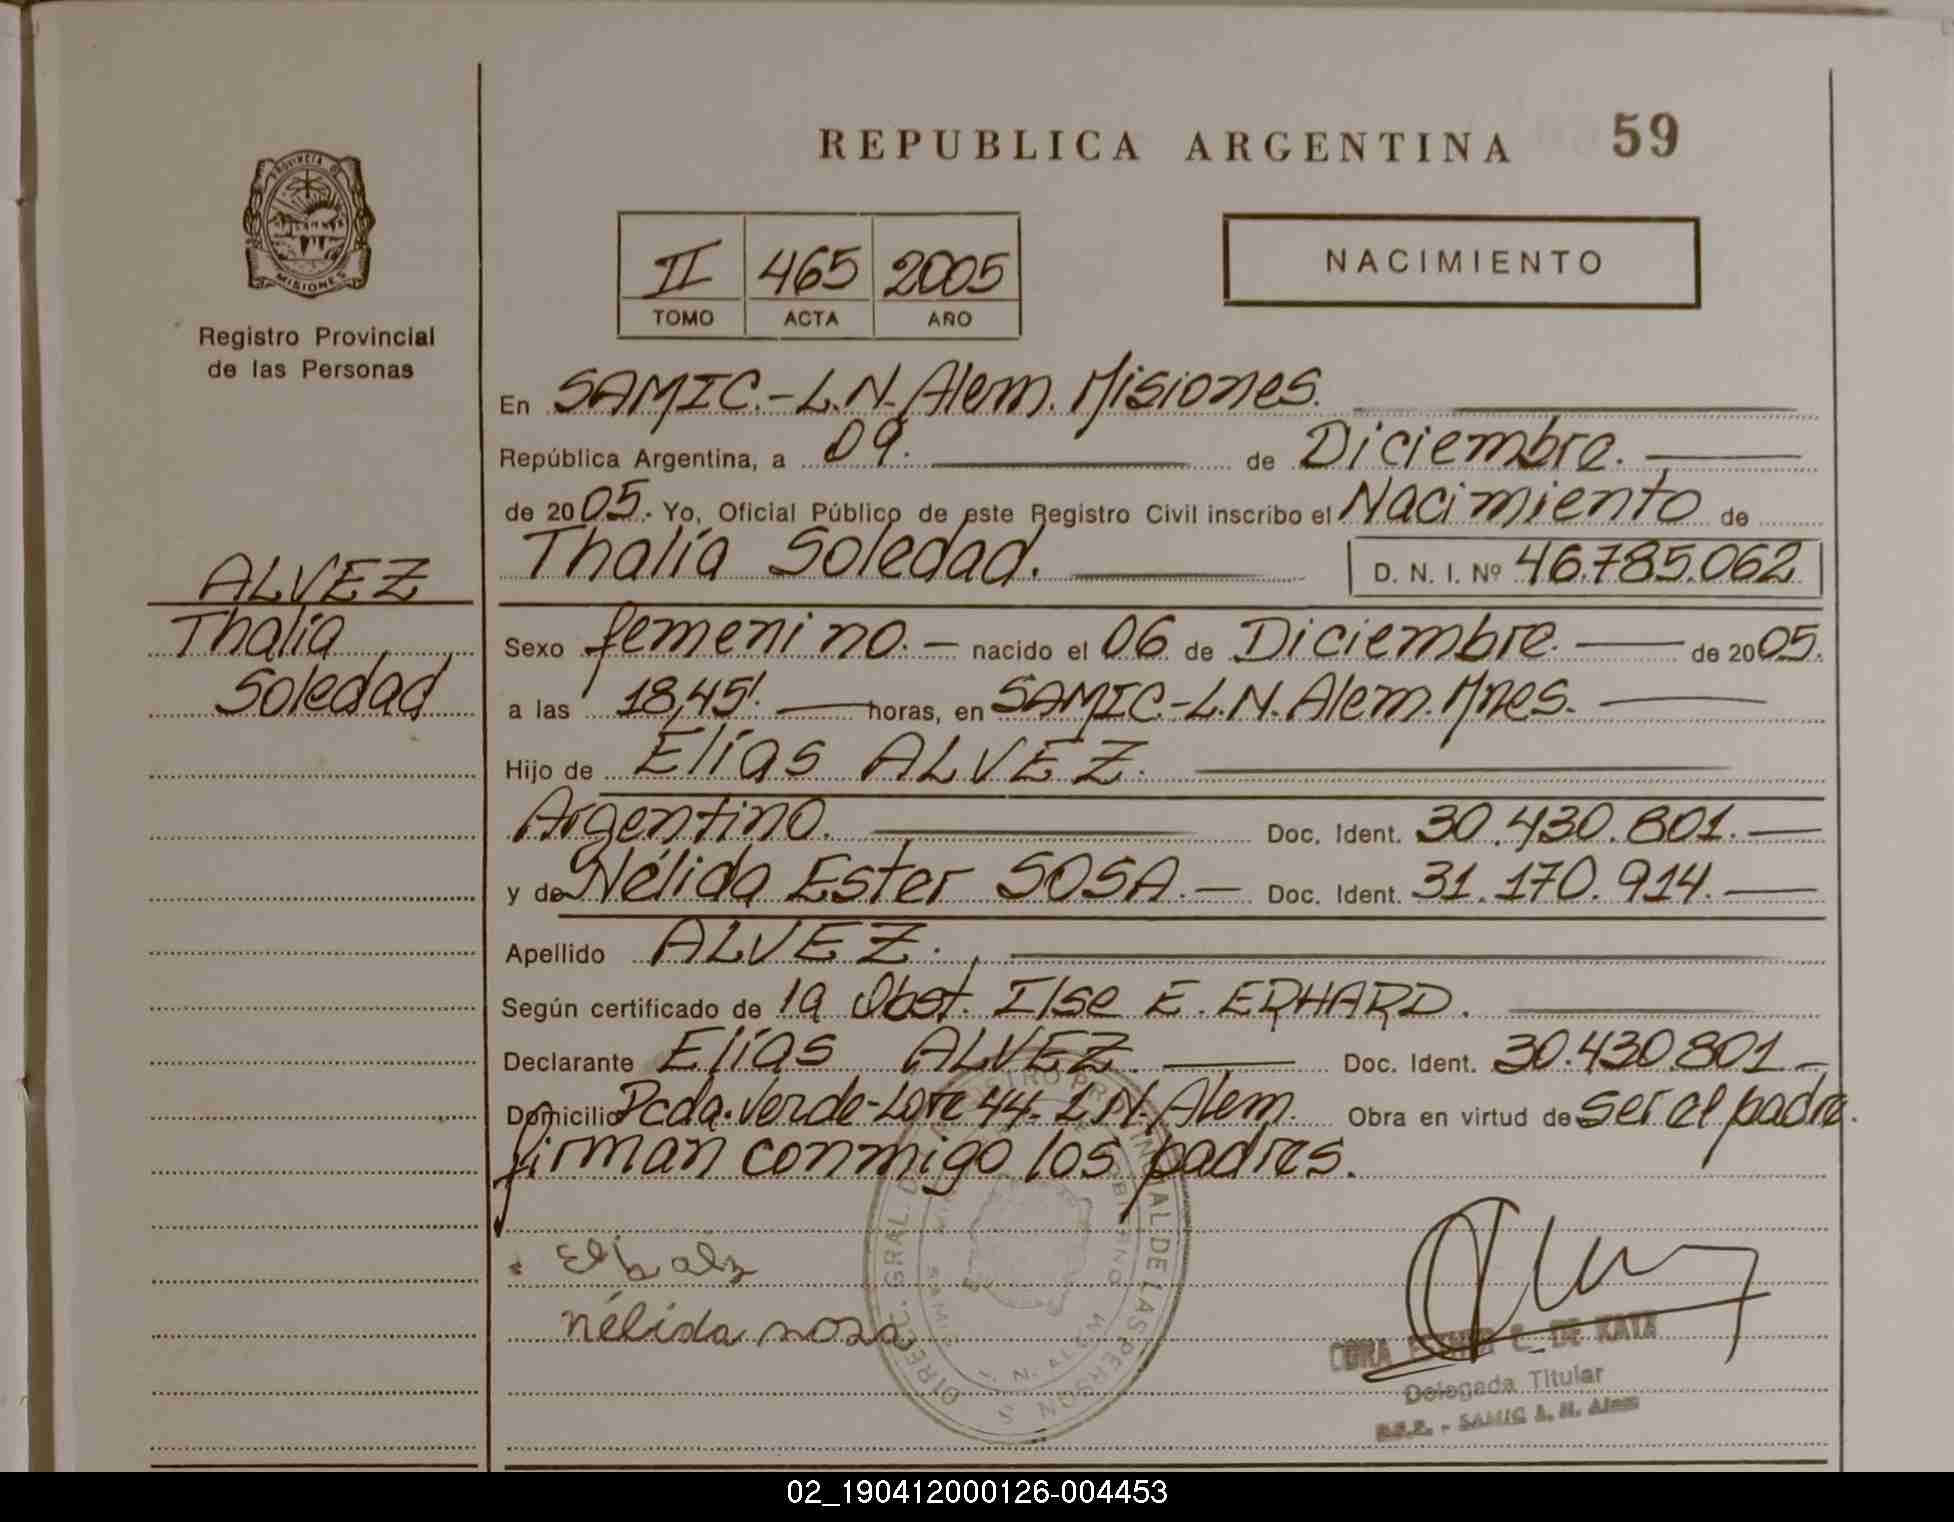 REPUBLICA ARGENTINA 59
PROVINCIA DE
MISIONES
Registro Provincial
de las Personas
II 465 2005
TOMO ACTA AÑO
NACIMIENTO
En SAMIC.-L.N.Alem. Misiones.
República Argentina, a 09. de Diciembre.
de 2005. Yo, Oficial Público de este Registro Civil inscribo el Nacimiento de
Thalía Soledad. D. N. I. Nº 46.785.062
ALVEZ
Thalía
Soledad
Sexo femenino.- nacido el 06 de Diciembre. de 2005.
a las 18,45'. horas, en SAMIC.-L.N.Alem.Mnes.
Hijo de Elías ALVEZ.
Argentino. Doc. Ident. 30.430.801.
y de Nélida Ester SOSA.- Doc. Ident. 31.170.914.
Apellido ALVEZ.
Según certificado de la Obst. Ilse E. ERHARD.
Declarante Elías ALVEZ. Doc. Ident. 30.430.801
Domicilio Pcda.Verde-Lote 44- L.N.Alem. Obra en virtud de ser el padre.
firman conmigo los padres.
nélida sosa
DIREC. GRAL. DE REGISTRO PROVINCIAL DE LAS PERSONAS
SAMIC L. N. ALEM
DE KATA
Delegada Titular
SAMIC L. N. Alem
02_190412000126-004453